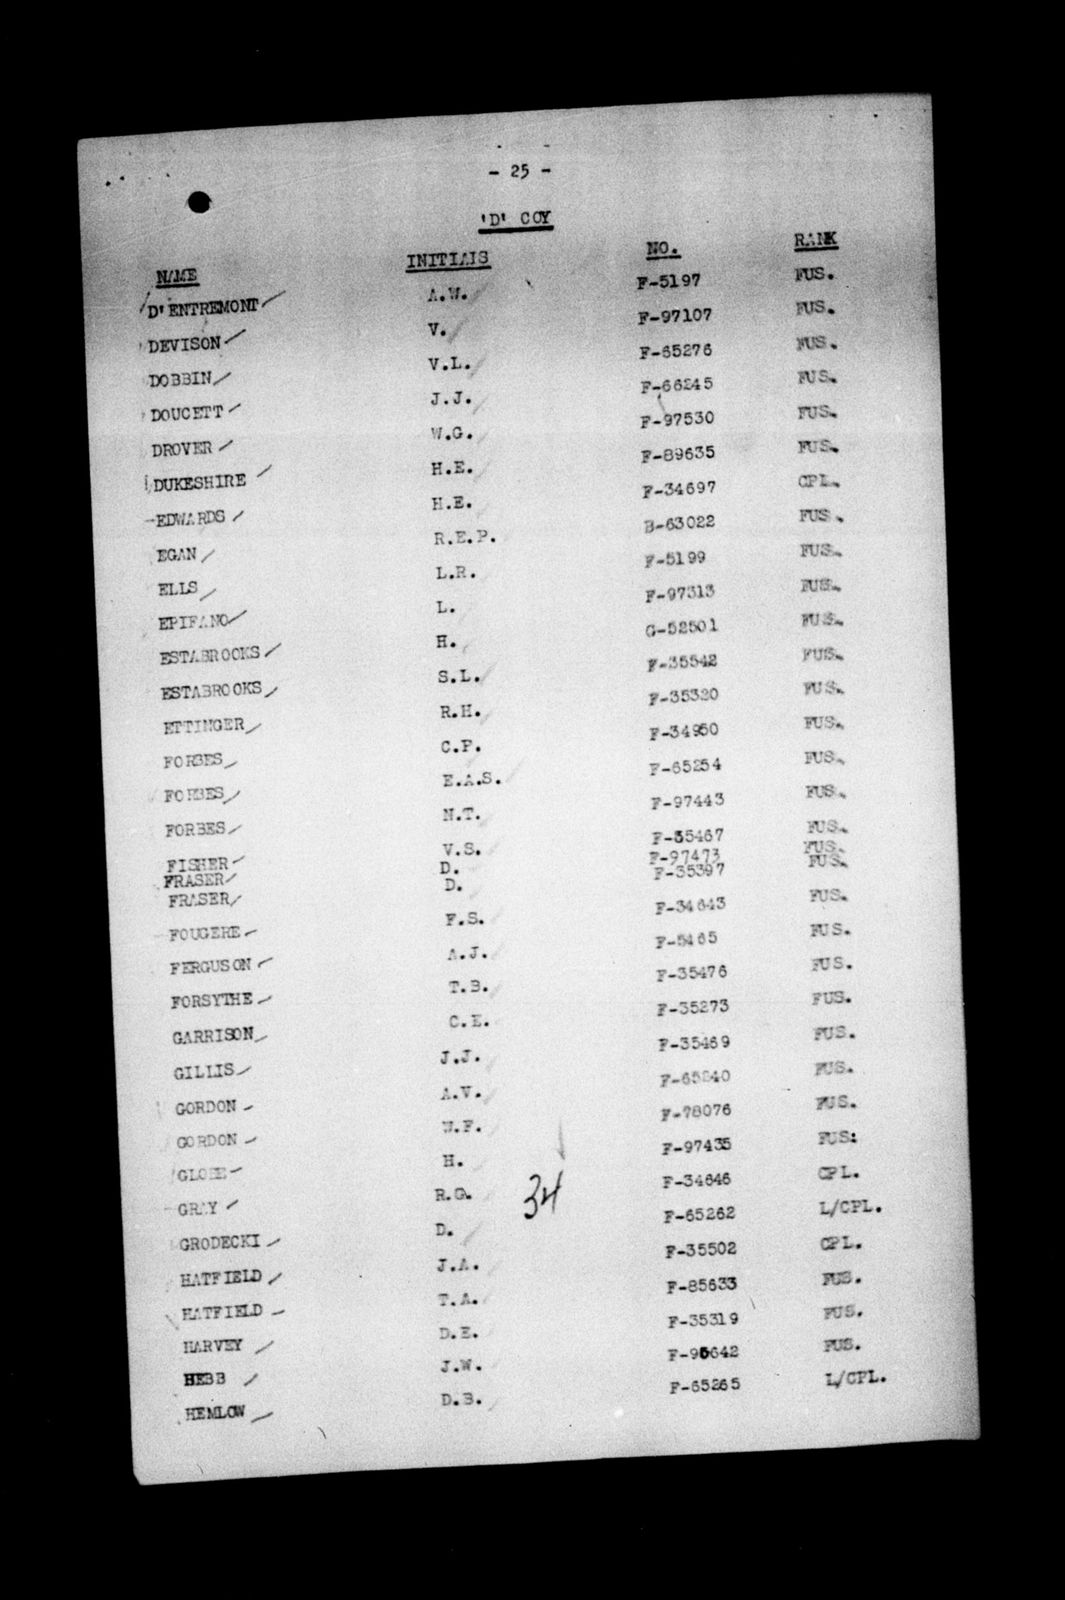 - 25 -
'D' COY
NAME INITIALS NO. RANK
D'ENTREMONT A.W. F-5197 FUS.
DEVISON V. F-97107 FUS.
DOBBIN V.L. F-65276 FUS.
DOUCETT J.J. F-66245 FUS.
DROVER W.G. F-97530 FUS.
DUKESHIRE H.E. F-89635 FUS.
EDWARDS H.E. F-34697 CPL.
EGAN R.E.P. B-63022 FUS.
ELLS L.R. F-5199 FUS.
EPIFANO L. F-97313 FUS.
ESTABROOKS H. G-52501 FUS.
ESTABROOKS S.L. F-35542 FUS.
ETTINGER R.H. F-35320 FUS.
FORBES C.P. F-34950 FUS.
FORBES E.A.S. F-65254 FUS.
FORBES N.T. F-97443 FUS.
FISHER V.S. F-35467 FUS.
FRASER D. F-97473 FUS.
FRASER D. F-35397 FUS.
FOUGERE F.S. F-34643 FUS.
FERGUSON A.J. F-5465 FUS.
FORSYTHE T.B. F-35476 FUS.
GARRISON C.E. F-35273 FUS.
GILLIS J.J. F-35469 FUS.
GORDON A.V. F-65240 FUS.
GORDON W.F. F-78076 FUS.
GLOBE H. F-97435 FUS:
GRAY R.G. F-34646 CPL.
34
GRODECKI D. F-65262 L/CPL.
HATFIELD J.A. F-35502 CPL.
HATFIELD T.A. F-85633 FUS.
HARVEY D.E. F-35319 FUS.
HEBB J.W. FUS.
HEMLOW D.B. F-65265 L/CPL.